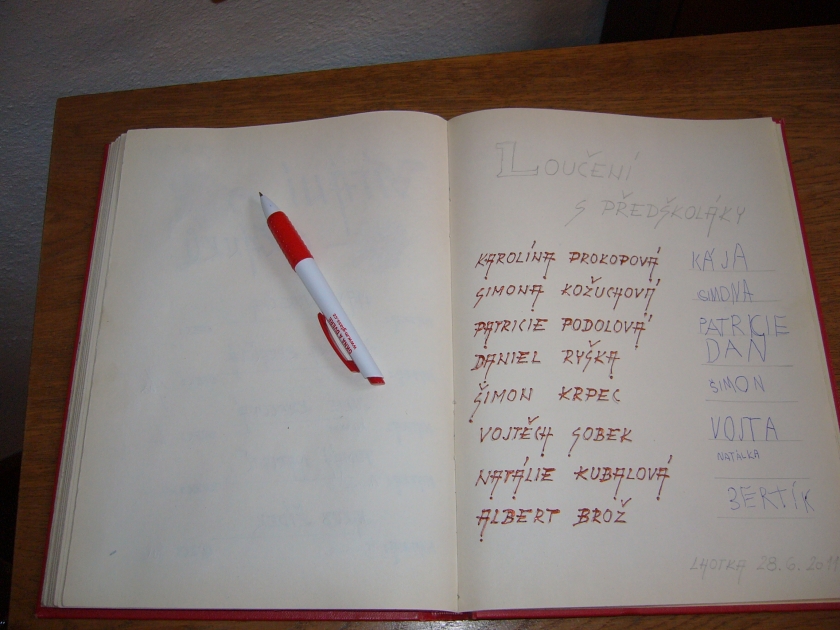 LOUČENÍ
S PŘEDŠKOLÁKY
KAROLÍNA PROKOPOVÁ KÁJA
SIMONA KOŽUCHOVÁ SIMONA
PATRICIE PODOLOVÁ PATRICIE
DANIEL RYŠKA DAN
ŠIMON KRPEC SIMON
VOJTĚCH SOBEK VOJTA
NATÁLIE KUBALOVÁ NATALKA
ALBERT BROŽ BERTÍK
LHOTKA 28.6.2011